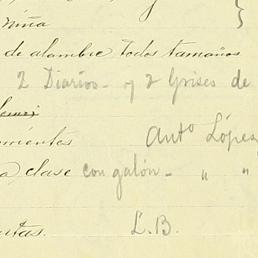 niña
de alambre todos tamaños
2 Diarios - y 2 Grises de
mientes Anto López
a clase con galón - " "
itas. L.B.